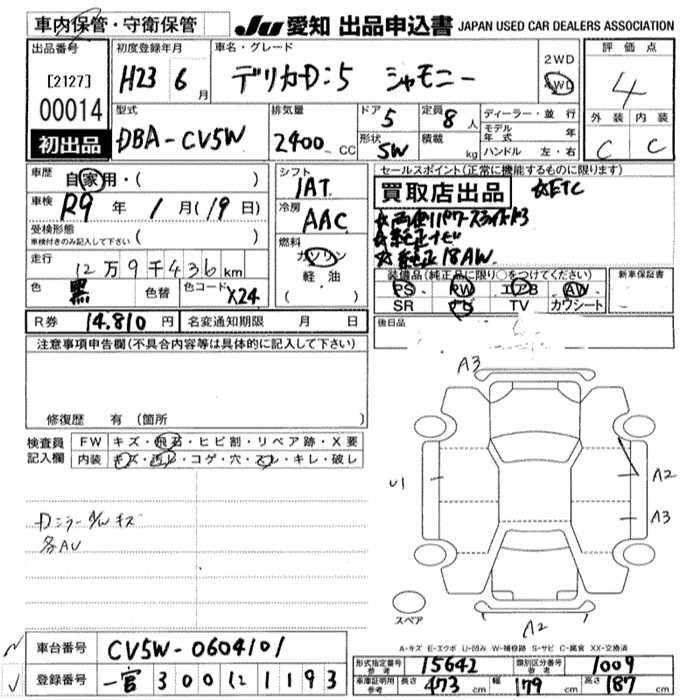 車内保管・守衛保管
JU 愛知 出品申込書 JAPAN USED CAR DEALERS ASSOCIATION
出品番号
[2127]
00014
初出品
初度登録年月
H23 6月
車名・グレード
デリカD:5 シャモニー
2WD
4WD
評価点
4
外装 内装
C C
型式
DBA-CV5W
排気量
2400 CC
ドア 5
形状 5W
定員 8人
積載 kg
ディーラー・並行
モデル年式 年
ハンドル 左・右
車歴
自家用・( )
車検
R9年 1月(19日)
受検形態
車検付きのみ記入して下さい ( )
走行
12万9千436km
色 黒 色替 色コード X24
シフト
1AT
冷房
AAC
燃料
ガソリン
軽・油
( )
セールスポイント(正常に機能するものに限ります)
買取店出品 ☆ETC
☆両側パワースライドドア
☆純正ナビ
☆純正18AW
装備品(純正品に限り○をつけてください)
PS PW エアB AW
SR ナビ TV カワシート
新車保証書
後日品
R券 14.810円
名変通知期限 月 日
注意事項申告欄(不具合内容等は具体的に記入して下さい)
修復歴 有(箇所
検査員記入欄
FW キズ・飛石・ヒビ割・リペア跡・X要
内装 キズ・汚レ・コゲ・穴・スレ・キレ・破レ
Dミラー A/W キズ
各AU
A3
U1
A2
A3
A2
スペア
A-キズ E-エクボ U-凹み W-補修跡 S-サビ C-腐食 XX-交換済
車台番号 CV5W-0604101
登録番号 一宮 300 に 1193
形式指定番号 参考 15642
類別区分番号 参考 1009
車庫証明用 参考 長さ 473cm 幅 179cm 高さ 187cm